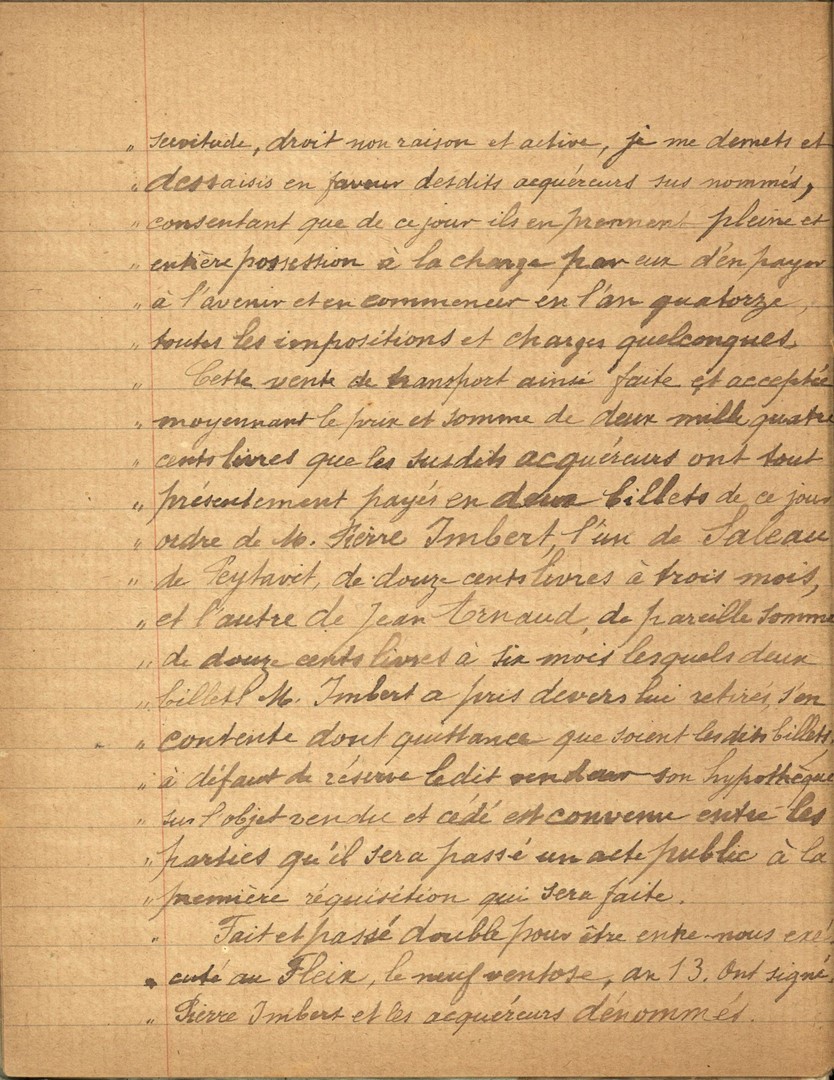 „ servitude, droit non raison et active, je me demets et
„ dessaisis en faveur desdits acquéreurs sus nommés,
„ consentant que de ce jour ils en prennent pleine et
„ entière possession à la charge par eux d'en payer
„ à l'avenir et en commencer en l'an quatorze,
„ toutes les impositions et charges quelconques.
„ Cette vente de transport ainsi faite et acceptée
„ moyennant le prix et somme de deux mille quatre
„ cents livres que les susdits acquéreurs ont tout
„ présentement payés en deux billets de ce jour
„ ordre de M. Pierre Imbert, l'un de Saleau
„ de Peytavit, de douze cents livres à trois mois,
„ et l'autre de Jean Arnaud, de pareille somme
„ de douze cents livres à six mois lesquels deux
„ billets M. Imbert a pris devers lui retirés, s'en
„ contente dont quittance que soient lesdits billets,
„ à défaut de réserve ledit vendeur son hypothèque
„ sur l'objet vendu et cédé est convenu entre les
„ parties qu'il sera passé un acte public à la
„ première réquisition qui sera faite.
„ Fait et passé double pour être entre-nous exé
„ cuté au Fleix, le neuf ventose, an 13. Ont signé,
„ Pierre Imbert et les acquéreurs dénommés.